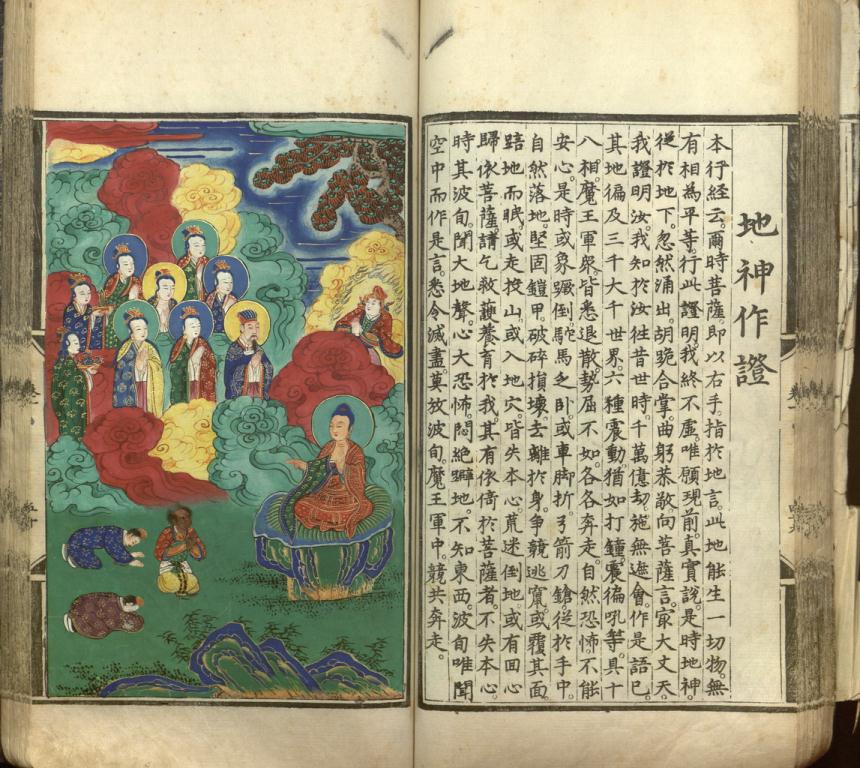 地神作證
本行経云。爾時菩薩。即以右手。指扵地言。此地能生一切物。無
有相為平等行。此證明我終不虛。唯願現前真實說。是時地神。
從扵地下。忽然涌出。胡跪合掌。曲躬恭敬。向菩薩言。㝡大丈夫。
我證明汝。我知扵汝。徃昔世時。千萬億劫。施無遮會。作是語已。
其地徧及三千大千世界。六種震動。猶如打鐘。震徧吼等。具十
八相。魔王軍眾。皆悉退散。勢屈不如。各各奔走。自然恐怖。不能
安心。是時或象蹶倒。駝馬乏卧。或車脚折。弓箭刀鎗。從扵手中
自然落地。堅固鎧甲。破碎損壞。去離扵身。争競逃竄。或覆其面
踣地而眠。或走投山。或入地穴。皆失本心。荒迷倒地。或有回心
歸依菩薩。請乞救護養育扵我。其有依倚扵菩薩者。不失本心。
時其波旬。聞大地聲。心大恐怖。悶絕躃地。不知東西。波旬唯聞
空中而作是言。悉令滅盡。莫放波旬。魔王軍中。競共奔走。